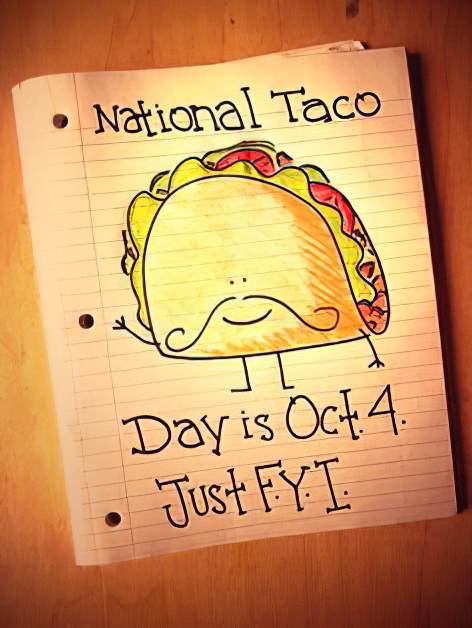 National Taco
Day is Oct. 4.
Just F.Y.I.